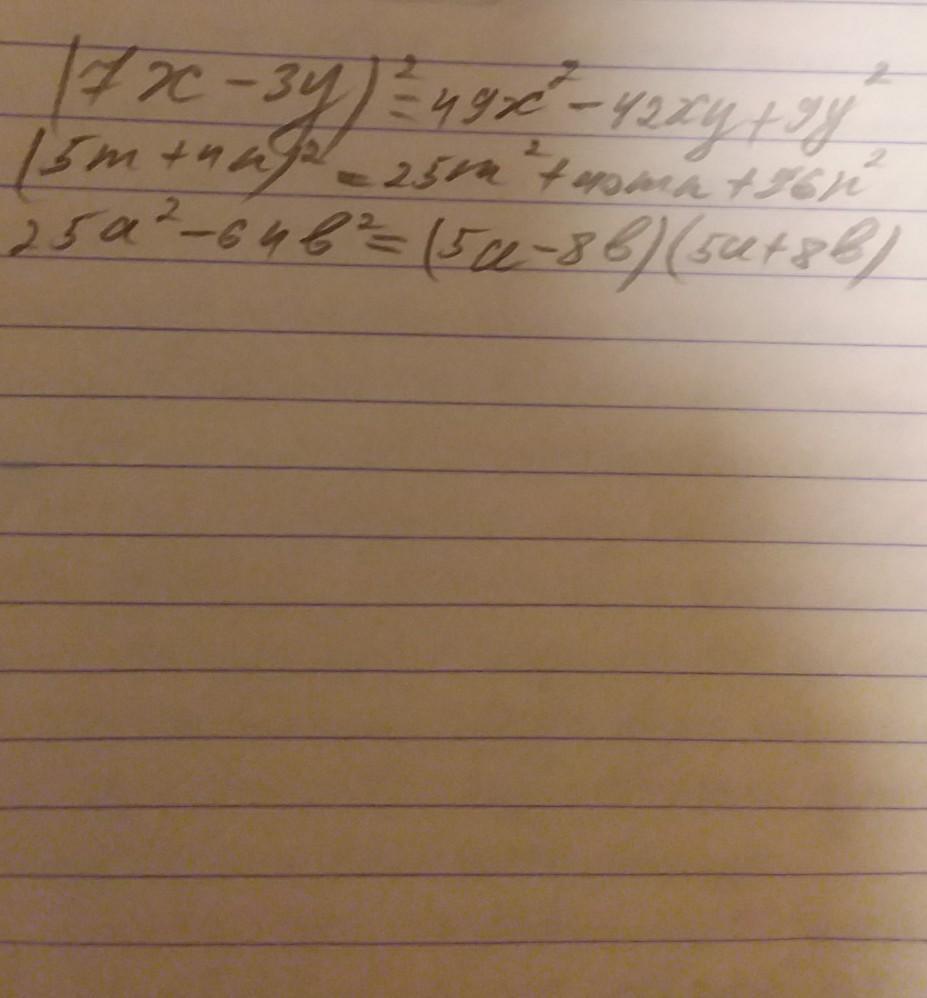 (7x - 3y)² = 49x² - 42xy + 9y²
(5m + 4n)² = 25m² + 40mn + 16n²
25a² - 64b² = (5a - 8b)(5a + 8b)